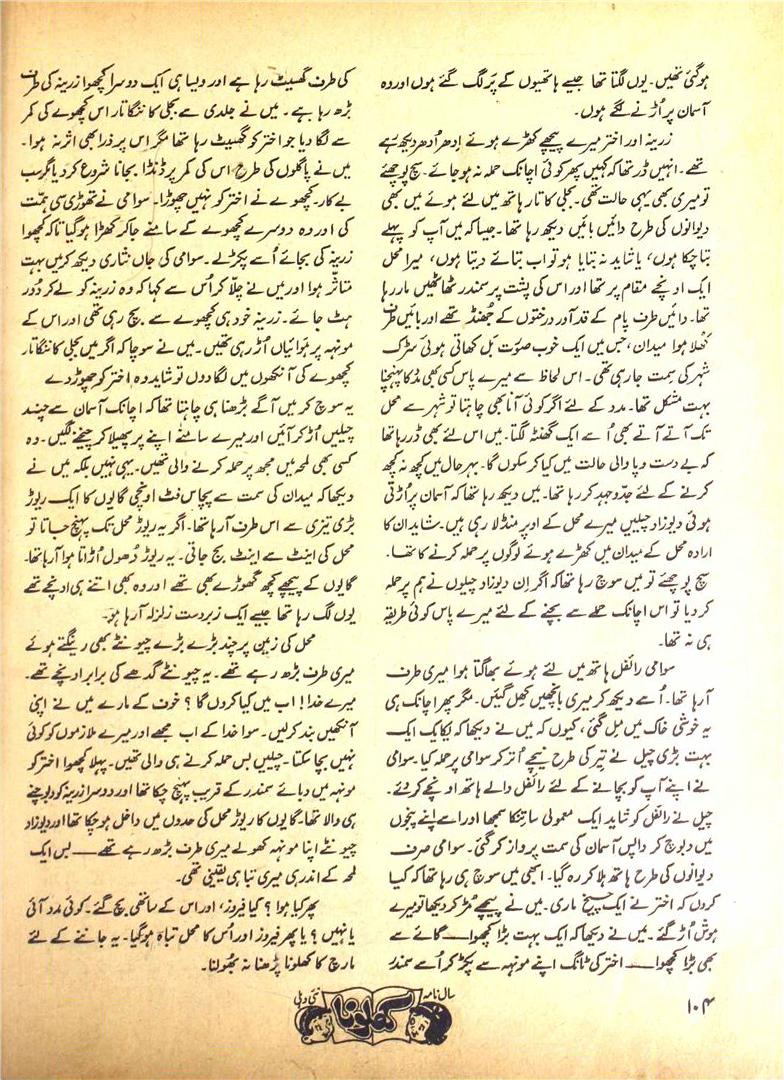 ہوگئی تھیں۔ یوں لگتا تھا جیسے ہاتھیوں کے پَر لگ گئے ہوں اور وہ
آسمان پر اُڑنے لگے ہوں۔
زرینہ اور اختر میرے پیچھے کھڑے ہوئے اِدھر اُدھر دیکھ رہے
تھے۔ انہیں ڈر تھا کہ کہیں پھر کوئی اچانک حملہ نہ ہو جائے۔ سچ پوچھئے
تو میری بھی یہی حالت تھی۔ بجلی کا تار ہاتھ میں لئے ہوئے میں بھی
دیوانوں کی طرح دائیں بائیں دیکھ رہا تھا۔ جیسا کہ میں آپ کو پہلے
بتا چکا ہوں، یا شاید نہ بتایا ہو تو اب بتائے دیتا ہوں، میرا محل
ایک اونچے مقام پر تھا اور اس کی پشت پر سمندر ٹھاٹھیں مار رہا
تھا۔ دائیں طرف پام کے قد آور درختوں کے جھُنڈ تھے اور بائیں طرف
کھُلا ہوا میدان، جس میں ایک خوب صورت بَل کھاتی ہوئی سڑک
شہر کی سمت جا رہی تھی۔ اس لحاظ سے میرے پاس کسی بھی مدد کا پہنچنا
بہت مشکل تھا۔ مدد کے لئے اگر کوئی آنا بھی چاہتا تو شہر سے محل
تک آتے آتے بھی اُسے ایک گھنٹہ لگتا۔ میں اس لئے بھی ڈر رہا تھا
کہ بے دست و پا والی حالت میں کیا کر سکوں گا۔ بہر حال میں کچھ نہ کچھ
کرنے کے لئے جدّوجہد کر رہا تھا۔ میں دیکھ رہا تھا کہ آسمان پر اُڑتی
ہوئی دیوزاد چیلیں میرے محل کے اوپر منڈلا رہی ہیں۔ شاید ان کا
ارادہ محل کے میدان میں کھڑے ہوئے لوگوں پر حملہ کرنے کا تھا۔
سچ پوچھئے تو میں سوچ رہا تھا کہ اگر اِن دیوزاد چیلوں نے ہم پر حملہ
کر دیا تو اس اچانک حملے سے بچنے کے لئے میرے پاس کوئی طریقہ
ہی نہ تھا۔
سوامی رائفل ہاتھ میں لئے ہوئے بھاگتا ہوا میری طرف
آ رہا تھا۔ اُسے دیکھ کر میری باچھیں کھِل گئیں۔ مگر پھر اچانک ہی
یہ خوشی خاک میں مل گئی، کیوں کہ میں نے دیکھا کہ یکایک ایک
بہت بڑی چیل نے تیر کی طرح نیچے اُتر کر سوامی پر حملہ کیا۔ سوامی
نے اپنے آپ کو بچانے کے لئے رائفل والے ہاتھ اونچے کر دئے۔
چیل نے رائفل کو شاید ایک معمولی سا تنکا سمجھا اور اسے اپنے پنجوں
میں دبوچ کر واپس آسمان کی سمت پرواز کر گئی۔ سوامی صرف
دیوانوں کی طرح ہاتھ ہلا کر رہ گیا۔ ابھی میں سوچ ہی رہا تھا کہ کیا
کروں کہ اختر نے ایک چیخ ماری۔ میں نے پیچھے مُڑ کر دیکھا تو میرے
ہوش اُڑ گئے۔ میں نے دیکھا کہ ایک بہت بڑا کچھوا—— گائے سے
بھی بڑا کچھوا—— اختر کی ٹانگ اپنے مونہہ سے پکڑ کر اُسے سمندر
کی طرف گھسیٹ رہا ہے اور ویسا ہی ایک دوسرا کچھوا زرینہ کی طرف
بڑھ رہا ہے۔ میں نے جلدی سے بجلی کا ننگا تار اس کچھوے کی کمر
سے لگا دیا جو اختر کو گھسیٹ رہا تھا مگر اِس پر ذرا بھی اثر نہ ہوا۔
میں نے پاگلوں کی طرح اس کی کمر پر ڈنڈا بجانا شروع کر دیا مگر سب
بے کار۔ کچھوے نے اختر کو نہیں چھوڑا۔ سوامی نے تھوڑی سی ہمّت
کی اور وہ دوسرے کچھوے کے سامنے جا کر کھڑا ہو گیا تاکہ کچھوا
زرینہ کی بجائے اُسے پکڑ لے۔ سوامی کی جاں نثاری دیکھ کر میں بہت
متاثّر ہوا اور میں نے چلّا کر اُس سے کہا کہ وہ زرینہ کو لے کر دُور
ہٹ جائے۔ زرینہ خود ہی کچھوے سے بچ رہی تھی اور اس کے
مونہہ پر ہَوائیاں اُڑ رہی تھیں۔ میں نے سوچا کہ اگر میں بجلی کا ننگا تار
کچھوے کی آنکھوں میں لگا دوں تو شاید وہ اختر کو چھوڑ دے
یہ سوچ کر میں آگے بڑھنا ہی چاہتا تھا کہ اچانک آسمان سے چند
چیلیں اُڑ کر آئیں اور میرے سامنے اپنے پر پھیلا کر چیخنے لگیں۔ وہ
کسی بھی لمحہ میں مجھ پر حملہ کرنے والی تھیں۔ یہی نہیں بلکہ میں نے
دیکھا کہ میدان کی سمت سے پچاس فٹ اونچی گایوں کا ایک ریوڑ
بڑی تیزی سے اس طرف آ رہا تھا۔ اگر یہ ریوڑ محل تک پہنچ جاتا تو
محل کی اینٹ سے اینٹ بج جاتی۔ یہ ریوڑ دُھول اُڑاتا ہوا آ رہا تھا۔
گایوں کے پیچھے کچھ گھوڑے بھی تھے اور وہ بھی اتنے ہی اونچے تھے
یوں لگ رہا تھا جیسے ایک زبردست زلزلہ آ رہا ہو۔
محل کی زمین پر چند بڑے بڑے چیونٹے بھی رینگتے ہوئے
میری طرف بڑھ رہے تھے۔ یہ چیونٹے گدھے کی برابر اونچے تھے۔
میرے خدا! اب میں کیا کروں گا؟ خوف کے مارے میں نے اپنی
آنکھیں بند کر لیں۔ سوا خدا کے اب مجھے اور میرے ملازموں کو کوئی
نہیں بچا سکتا۔ چیلیں بس حملہ کرنے ہی والی تھیں۔ پہلا کچھوا اختر کو
مونہہ میں دبائے سمندر کے قریب پہنچ چکا تھا اور دوسرا زرینہ کو دبوچنے
ہی والا تھا۔ گایوں کا ریوڑ محل کی حدوں میں داخل ہو چکا تھا اور دیوزاد
چیونٹے اپنا مونہہ کھولے میری طرف بڑھ رہے تھے—— بس ایک
لمحہ کے اندر ہی میری تباہی یقینی تھی۔
پھر کیا ہوا؟ کیا فیروز، اور اس کے ساتھی بچ گئے۔ کوئی مدد آئی
یا نہیں؟ یا پھر فیروز اور اُس کا محل تباہ ہو گیا۔ یہ جاننے کے لئے
مارچ کا کھلونا پڑھنا نہ بھُولنا۔
سالنامہ کھلونا نئی دہلی
۱۰۴